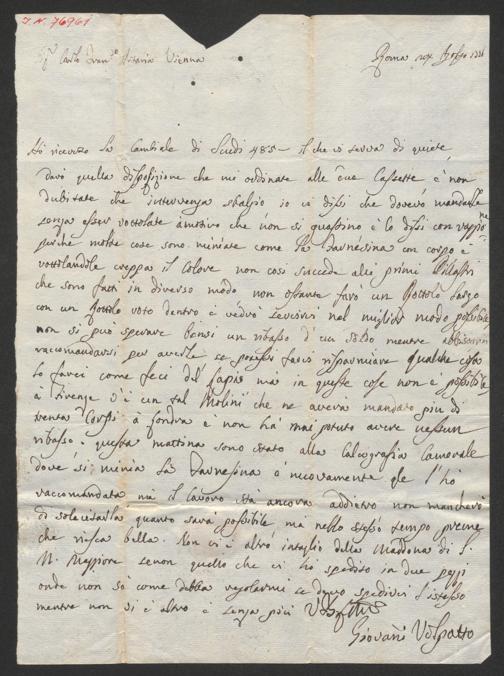 I.N. 76961
Artaria Vienna
Roma
Hò ricevuto la Cambiale di Scudi 485 - il che vi serva di quiete
Darò quella disposizione che mi ordinate alle due Cassette e non
dubitate che intervenga sbaglio io vi dissi che dovevo mandarle
senza esser vottolate motivo che non si guastino e lo dissi con
perche molte cose sono miniate come la Farnesina con corpo e
vottolandole creppa il colore non cosi succede alli primi Pilastri
che sono fatti in diverso modo non ostante farò un Rottolo largo
con un Rottolo voto dentro e vedrò servirvi nel miglior modo possibile
non si può sperare bensi un ribasso d'un soldo mentre
raccomandarsi per averla se potessi farvi risparmiare qualche cosa
lo farei come feci del ma in queste cose non è possibile
à Firenze v'è un tal Molini che ne averà mandato più di
trenta Corpi à Londra e non hà mai potuto avere nessun
ribasso. questa mattina sono stato alla Calcografia Camerale
dove si minia la Farnesina e nuovamente gle l'hò
raccomandata ma il lavoro sta ancora addietro non mancherò
di solecitarla quanto sarà possibile ma nello stesso tempo preme
che riesca bella. Non vi è altro intaglio della Madonna di S.
M. Maggiore senon quello che vi hò spedito in due pezzi
onde non sò come debba regolarmi se devo spedirvi l'istesso
mentre non vi è altro e senza più
Giovañi Volpatto